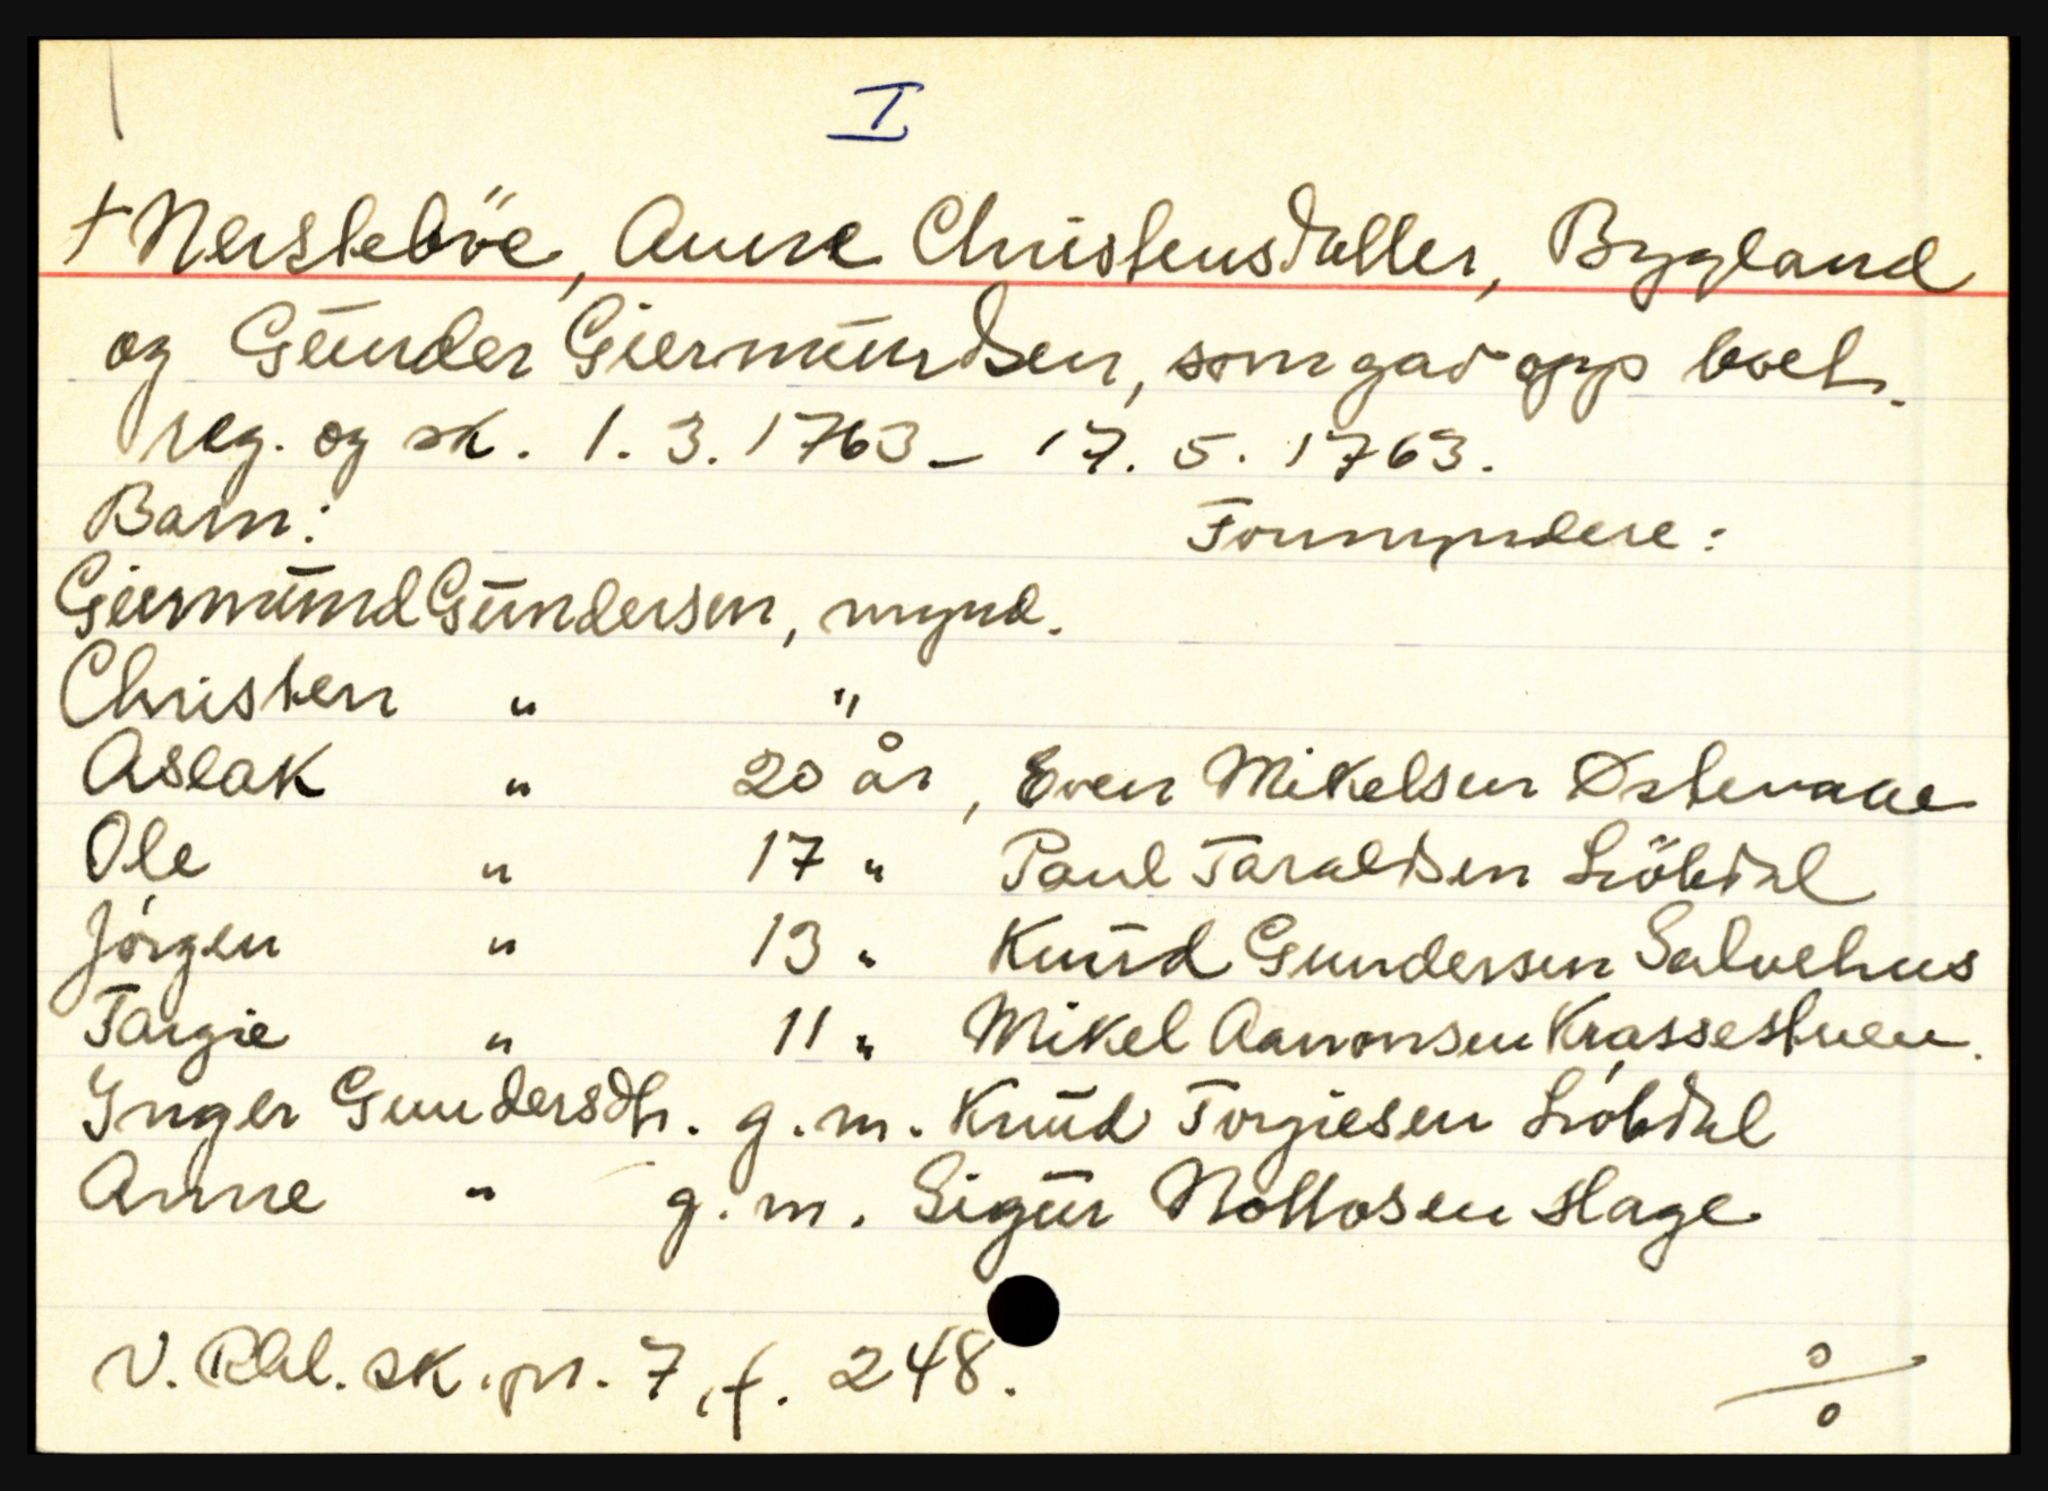 I
† Nersteböe, Anne Christensdatter, Bygland
og Gunder Giermundsen, som gav opp boet.
reg. og sk. 1.3.1763 – 17.5.1763.
Barn: Formyndere:
Giermund Gundersen, mynd.
Christen " "
Aslak " 20 år, Even Mikelsen
Ole " 17 " Paul Taraldsen Löbdal
Jörgen " 13 " Knud Gundersen Salvehus
Targie " 11 " Mikel Aanonsen
Inger Gundersdtr. g.m. Knud Torgiesen Löbdal
Anne " g.m. Sigur Nottosen Hage
V. Rbl. sk.pr. 7, f. 248.
o/o